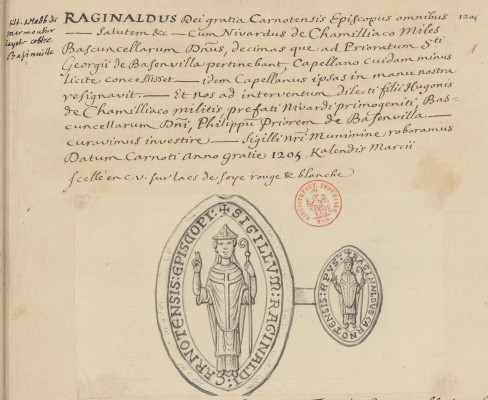 tit. de l'Abb. de
marmoutier
layette cottée
Basinville
RAGINALDUS Dei gratia Carnotensis Episcopus omnibus
1205
— salutem &c — Cum Nivardus de Chamilliaco Miles
Bascuncellarum Dñus, decimas que ad Prioratum Sti
Georgii de Basenvilla pertinebant, Capellano cuidam minus
licite concessisset — idem Capellanus ipsas in manu nostra
resignavit. — Et Nos ad interventum Dilecti filii Hugonis
de Chamilliaco militis prefati Nivardi primogeniti, Bas-
cuncellarum Dñi, Philippū Priorem de Basenvilla —
curavimus investire — Sigilli nri Munimine roboramus
Datum Carnoti Anno gratie 1205. Kalendis Marcii
scellé en c. v. sur lacs de soye rouge & blanche
BIBLIOTHEQUE IMPERIALE
✝ SIGILLVM: RAGINALDI: CARNOTENSIS: EPISCOPI:
✝ RAGINALDUS CARNOTENSIS: EPVS: